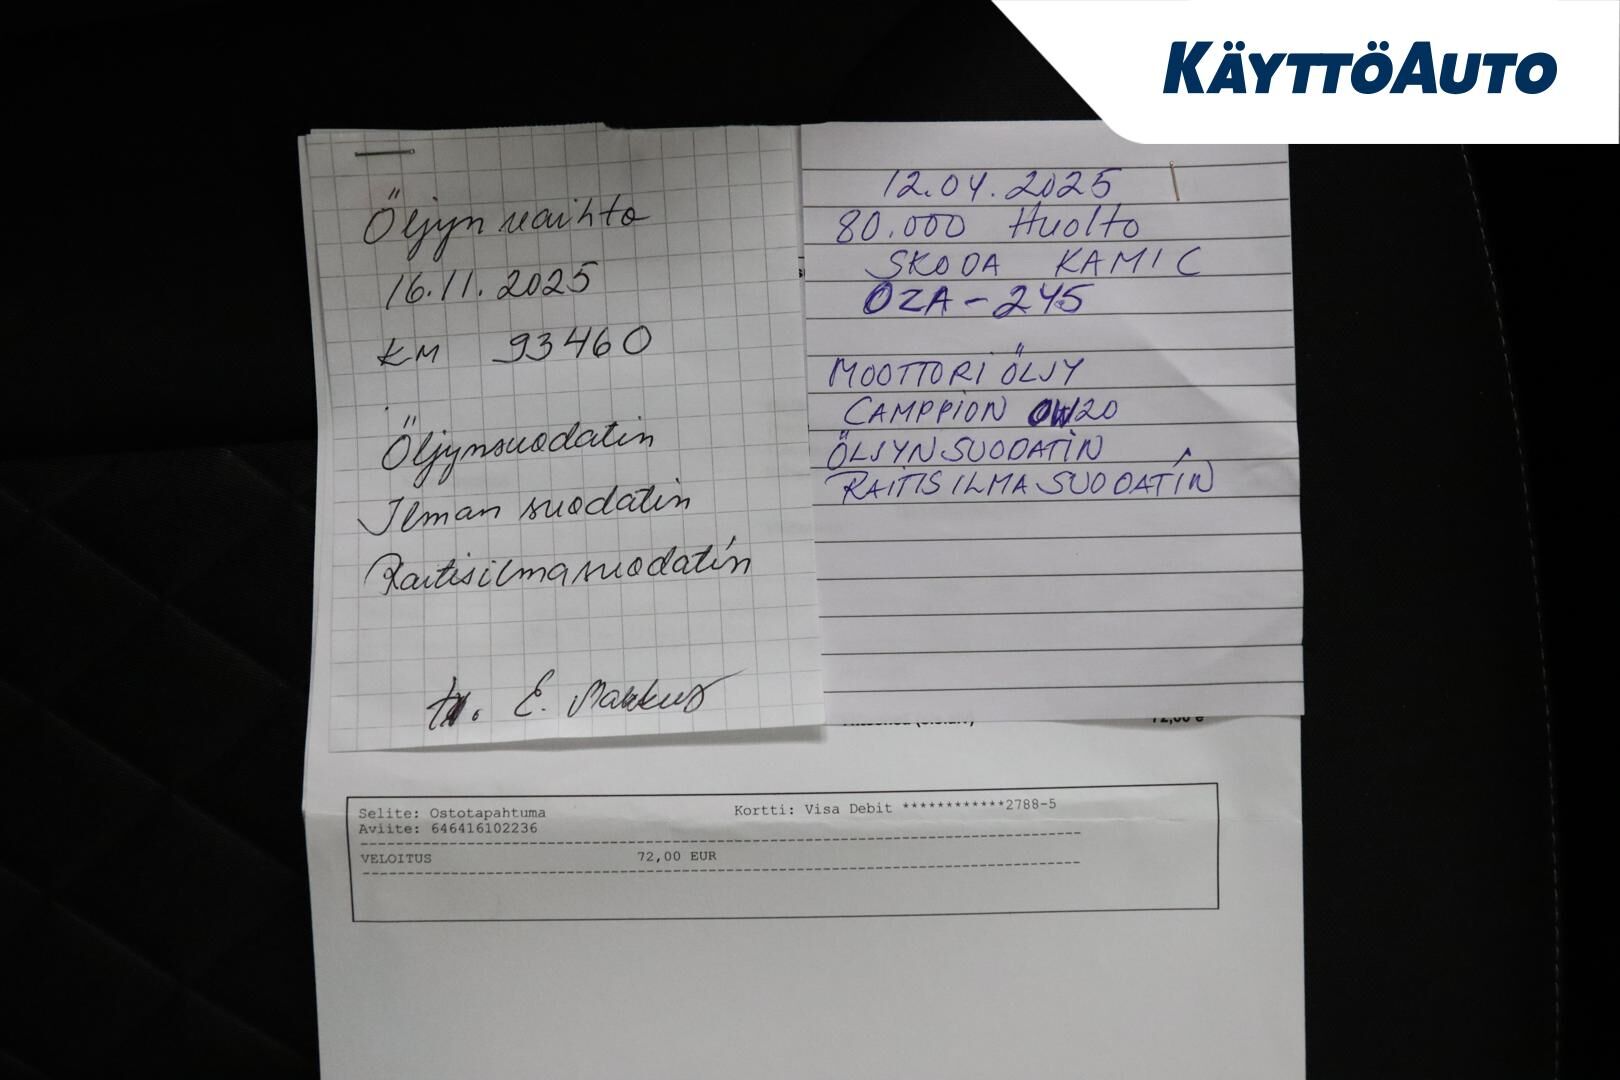 KÄYTTÖAUTO
Öljyn vaihto
16.11.2025
KM 93460
Öljynsuodatin
Ilman suodatin
Raitisilmasuodatin
E. Markus
12.04.2025
80.000 Huolto
SKODA KAMIC
OZA-245
MOOTTORI ÖLJY
CAMPPION 0W20
ÖLJYNSUODATIN
RAITISILMASUODATIN
72,00 €
Selite: Ostotapahtuma Kortti: Visa Debit ************2788-5
Aviite: 646416102236
VELOITUS 72,00 EUR